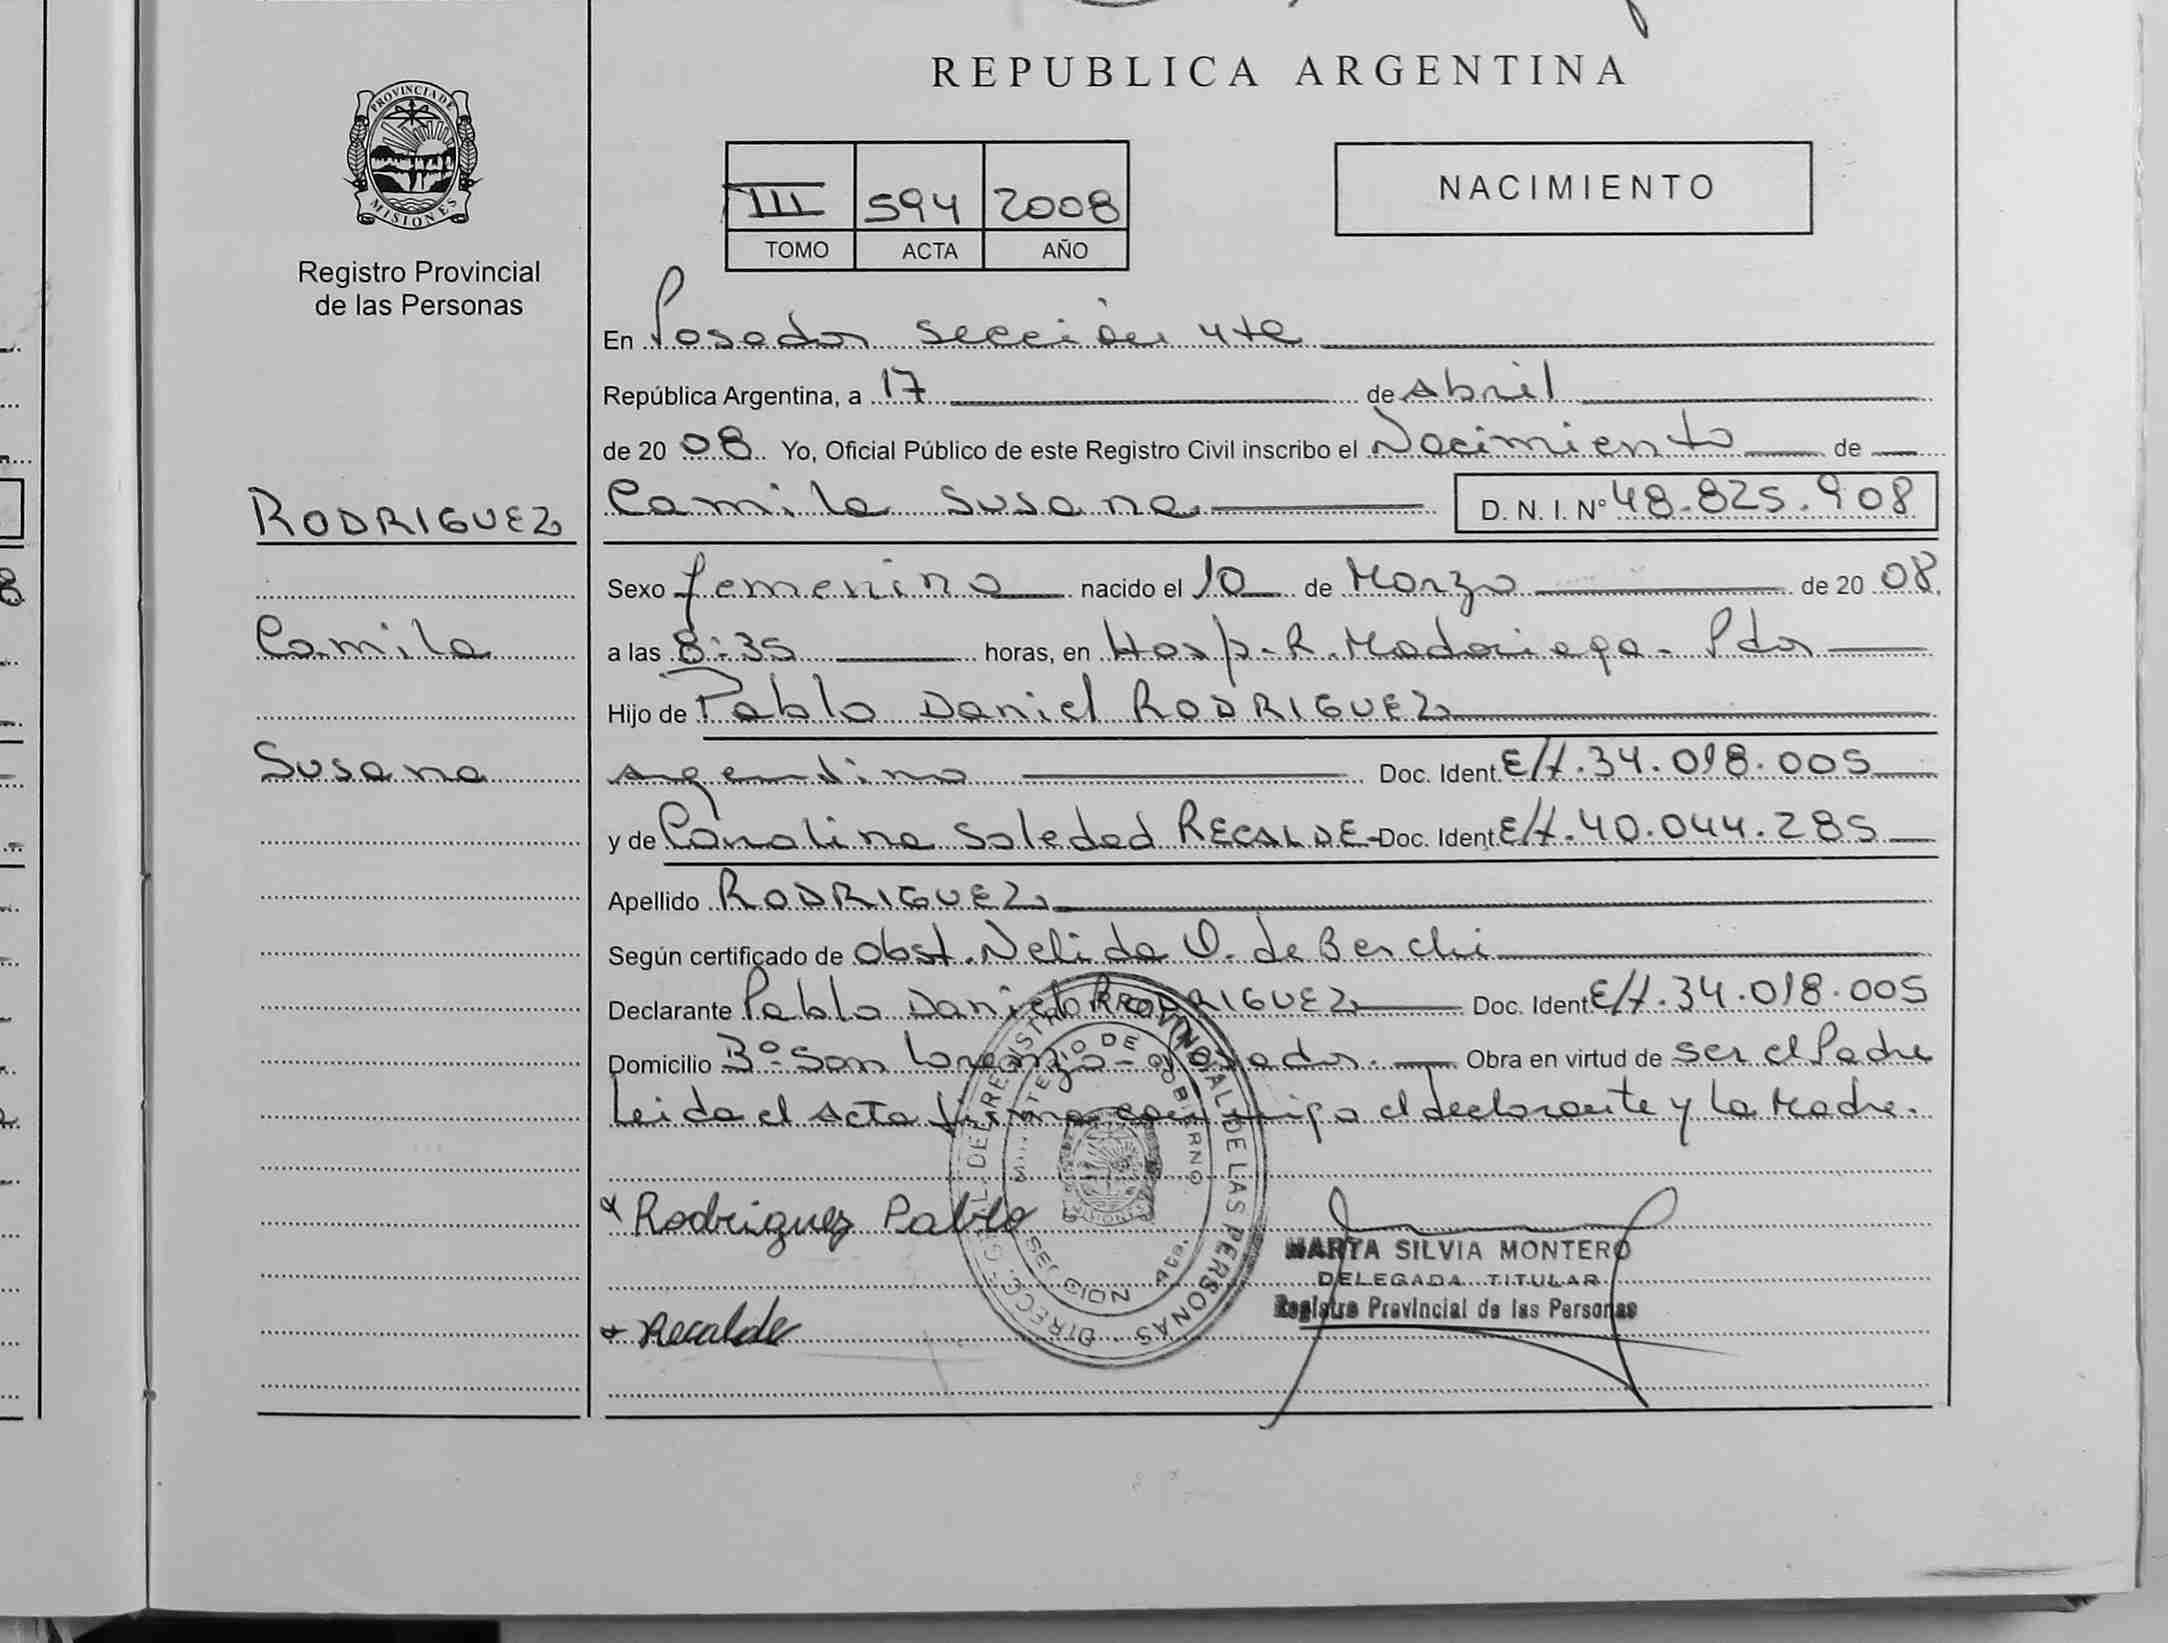 REPUBLICA ARGENTINA
PROVINCIA DE MISIONES
Registro Provincial
de las Personas
III 594 2008
TOMO ACTA AÑO
NACIMIENTO
En Posadas sección 4ta
República Argentina, a 17 de Abril
de 20 08 Yo, Oficial Público de este Registro Civil inscribo el Nacimiento de
RODRIGUEZ
Camila Susana D. N. I. Nº 48.825.908
Sexo femenino nacido el 10 de Marzo de 20 08
Camila
a las 8:35 horas, en Hosp. R. Madariaga - Pdas
Hijo de Pablo Daniel RODRIGUEZ
Susana
Argentino Doc. Ident. E/t. 34.018.005
y de Carolina Soledad RECALDE - Doc. Ident. E/t. 40.044.285
Apellido RODRIGUEZ
Según certificado de Obst. Nelida O. de Berchi
Declarante Pablo Daniel RODRIGUEZ Doc. Ident. E/t. 34.018.005
Domicilio Bº San Lorenzo - Posadas. Obra en virtud de ser el Padre
Leida el Acta firma conmigo el declarante y la Madre.
DIRECC. GRAL. DEL REGISTRO PROVINCIAL DE LAS PERSONAS
MINISTERIO DE GOBIERNO
SECCION 4ta.
Rodriguez Pablo
MARTA SILVIA MONTERO
DELEGADA TITULAR
Registro Provincial de las Personas
Recalde